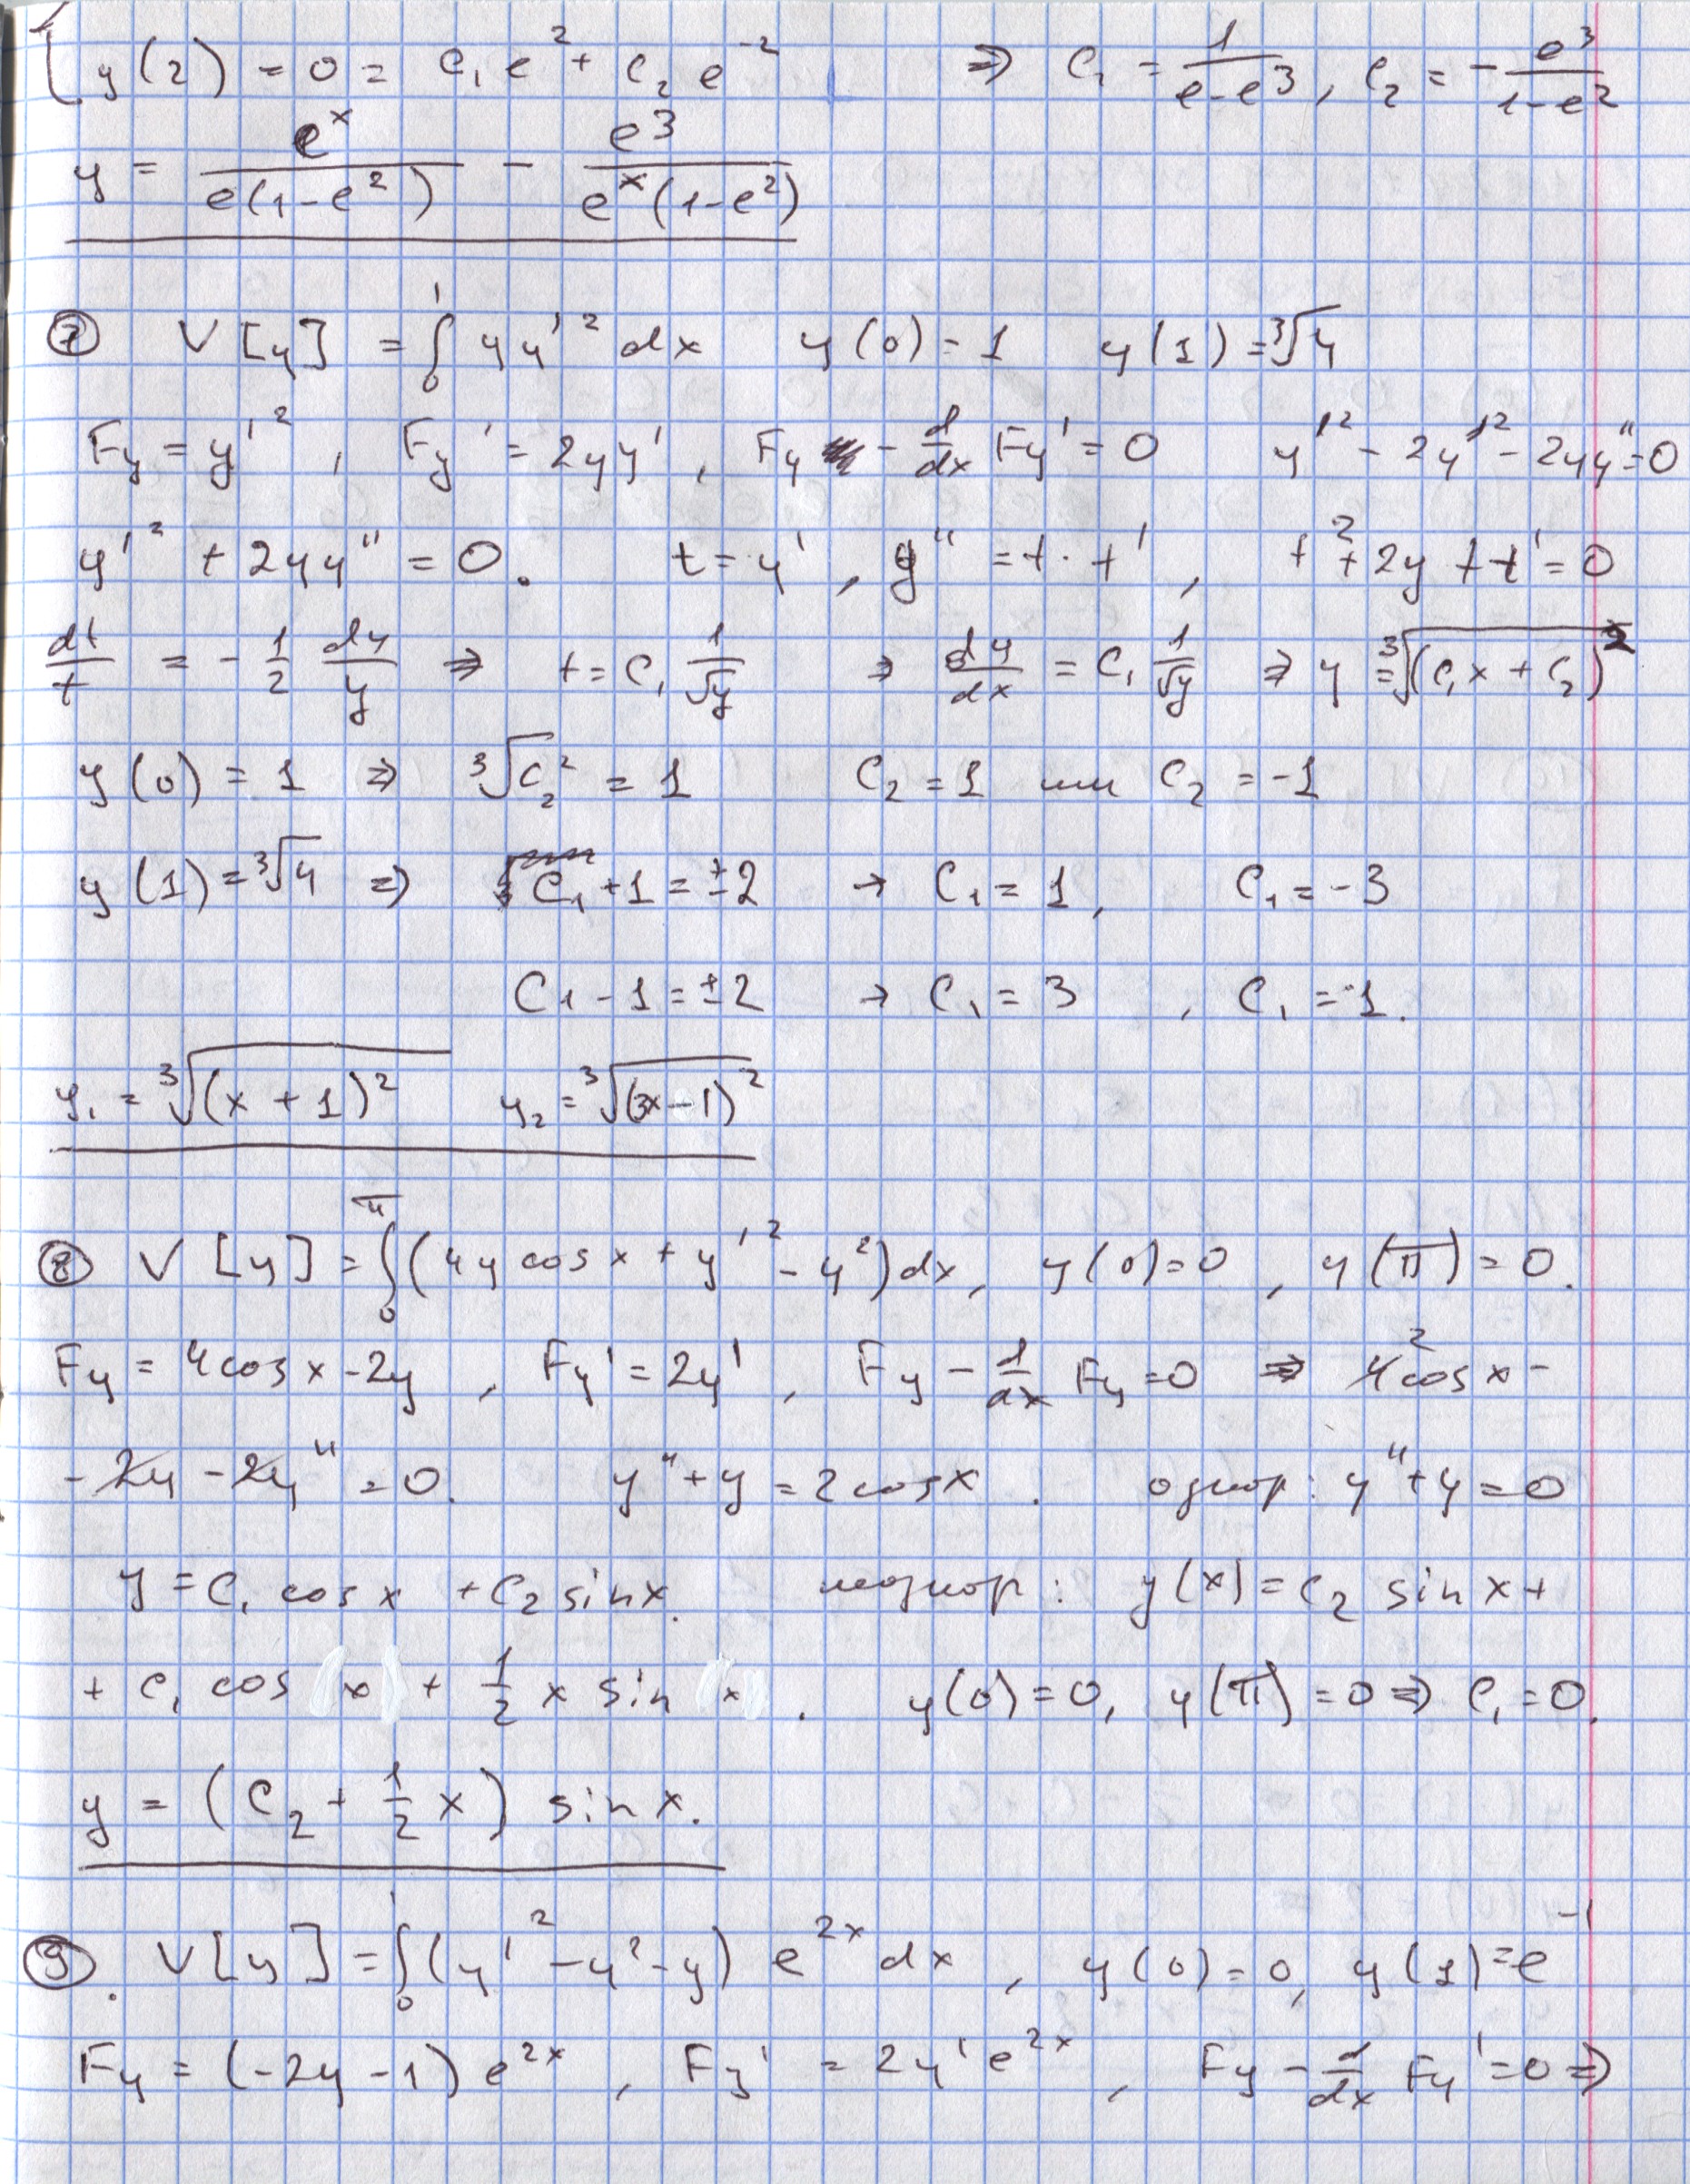 { y(2) = 0 = C₁e² + C₂e⁻² ⇒ C₁ = 1/(e-e³), C₂ = -e³/(1-e²)
y = eˣ/(e(1-e²)) - e³/(eˣ(1-e²))
⑦ V[y] = ∫₀¹ yy'² dx y(0) = 1 y(1) = ∛4
Fy = y'², Fy' = 2yy', Fy - d/dx Fy' = 0 y'² - 2y'² - 2yy'' = 0
y'² + 2yy'' = 0. t = y', y'' = t·t', t² + 2y t t' = 0
dt/t = -1/2 dy/y ⇒ t = C₁ 1/√y ⇒ dy/dx = C₁ 1/√y ⇒ y = ∛(C₁x + C₂)²
y(0) = 1 ⇒ ∛C₂² = 1 C₂ = 1 или C₂ = -1
y(1) = ∛4 ⇒ C₁ + 1 = ±2 → C₁ = 1, C₁ = -3
C₁ - 1 = ±2 → C₁ = 3, C₁ = -1.
y₁ = ∛(x + 1)² y₂ = ∛(3x - 1)²
⑧ V[y] = ∫₀^π (4y cos x + y'² - y²) dx, y(0) = 0, y(π) = 0.
Fy = 4cos x - 2y, Fy' = 2y', Fy - d/dx Fy = 0 ⇒ 4² cos x -
- 2y - 2y'' = 0. y'' + y = 2cos x. однор: y'' + y = 0
y = C₁ cos x + C₂ sin x. неоднор: y(x) = C₂ sin x +
+ C₁ cos x + 1/2 x sin x. y(0) = 0, y(π) = 0 ⇒ C₁ = 0.
y = (C₂ + 1/2 x) sin x.
⑨. V[y] = ∫₀¹ (y'² - y² - y) e²ˣ dx, y(0) = 0, y(1) = e⁻¹
Fy = (-2y - 1) e²ˣ, Fy' = 2y' e²ˣ, Fy - d/dx Fy' = 0 ⇒